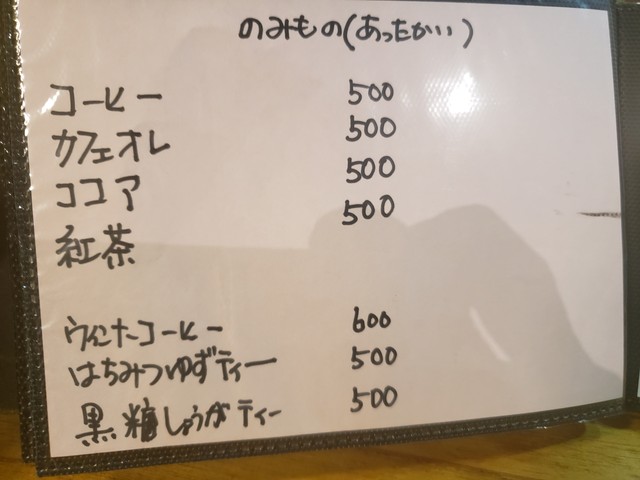 のみもの(あったかい)
コーヒー 500
カフェオレ 500
ココア 500
紅茶 500
ウィンナーコーヒー 600
はちみつゆずティー 500
黒糖しょうがティー 500